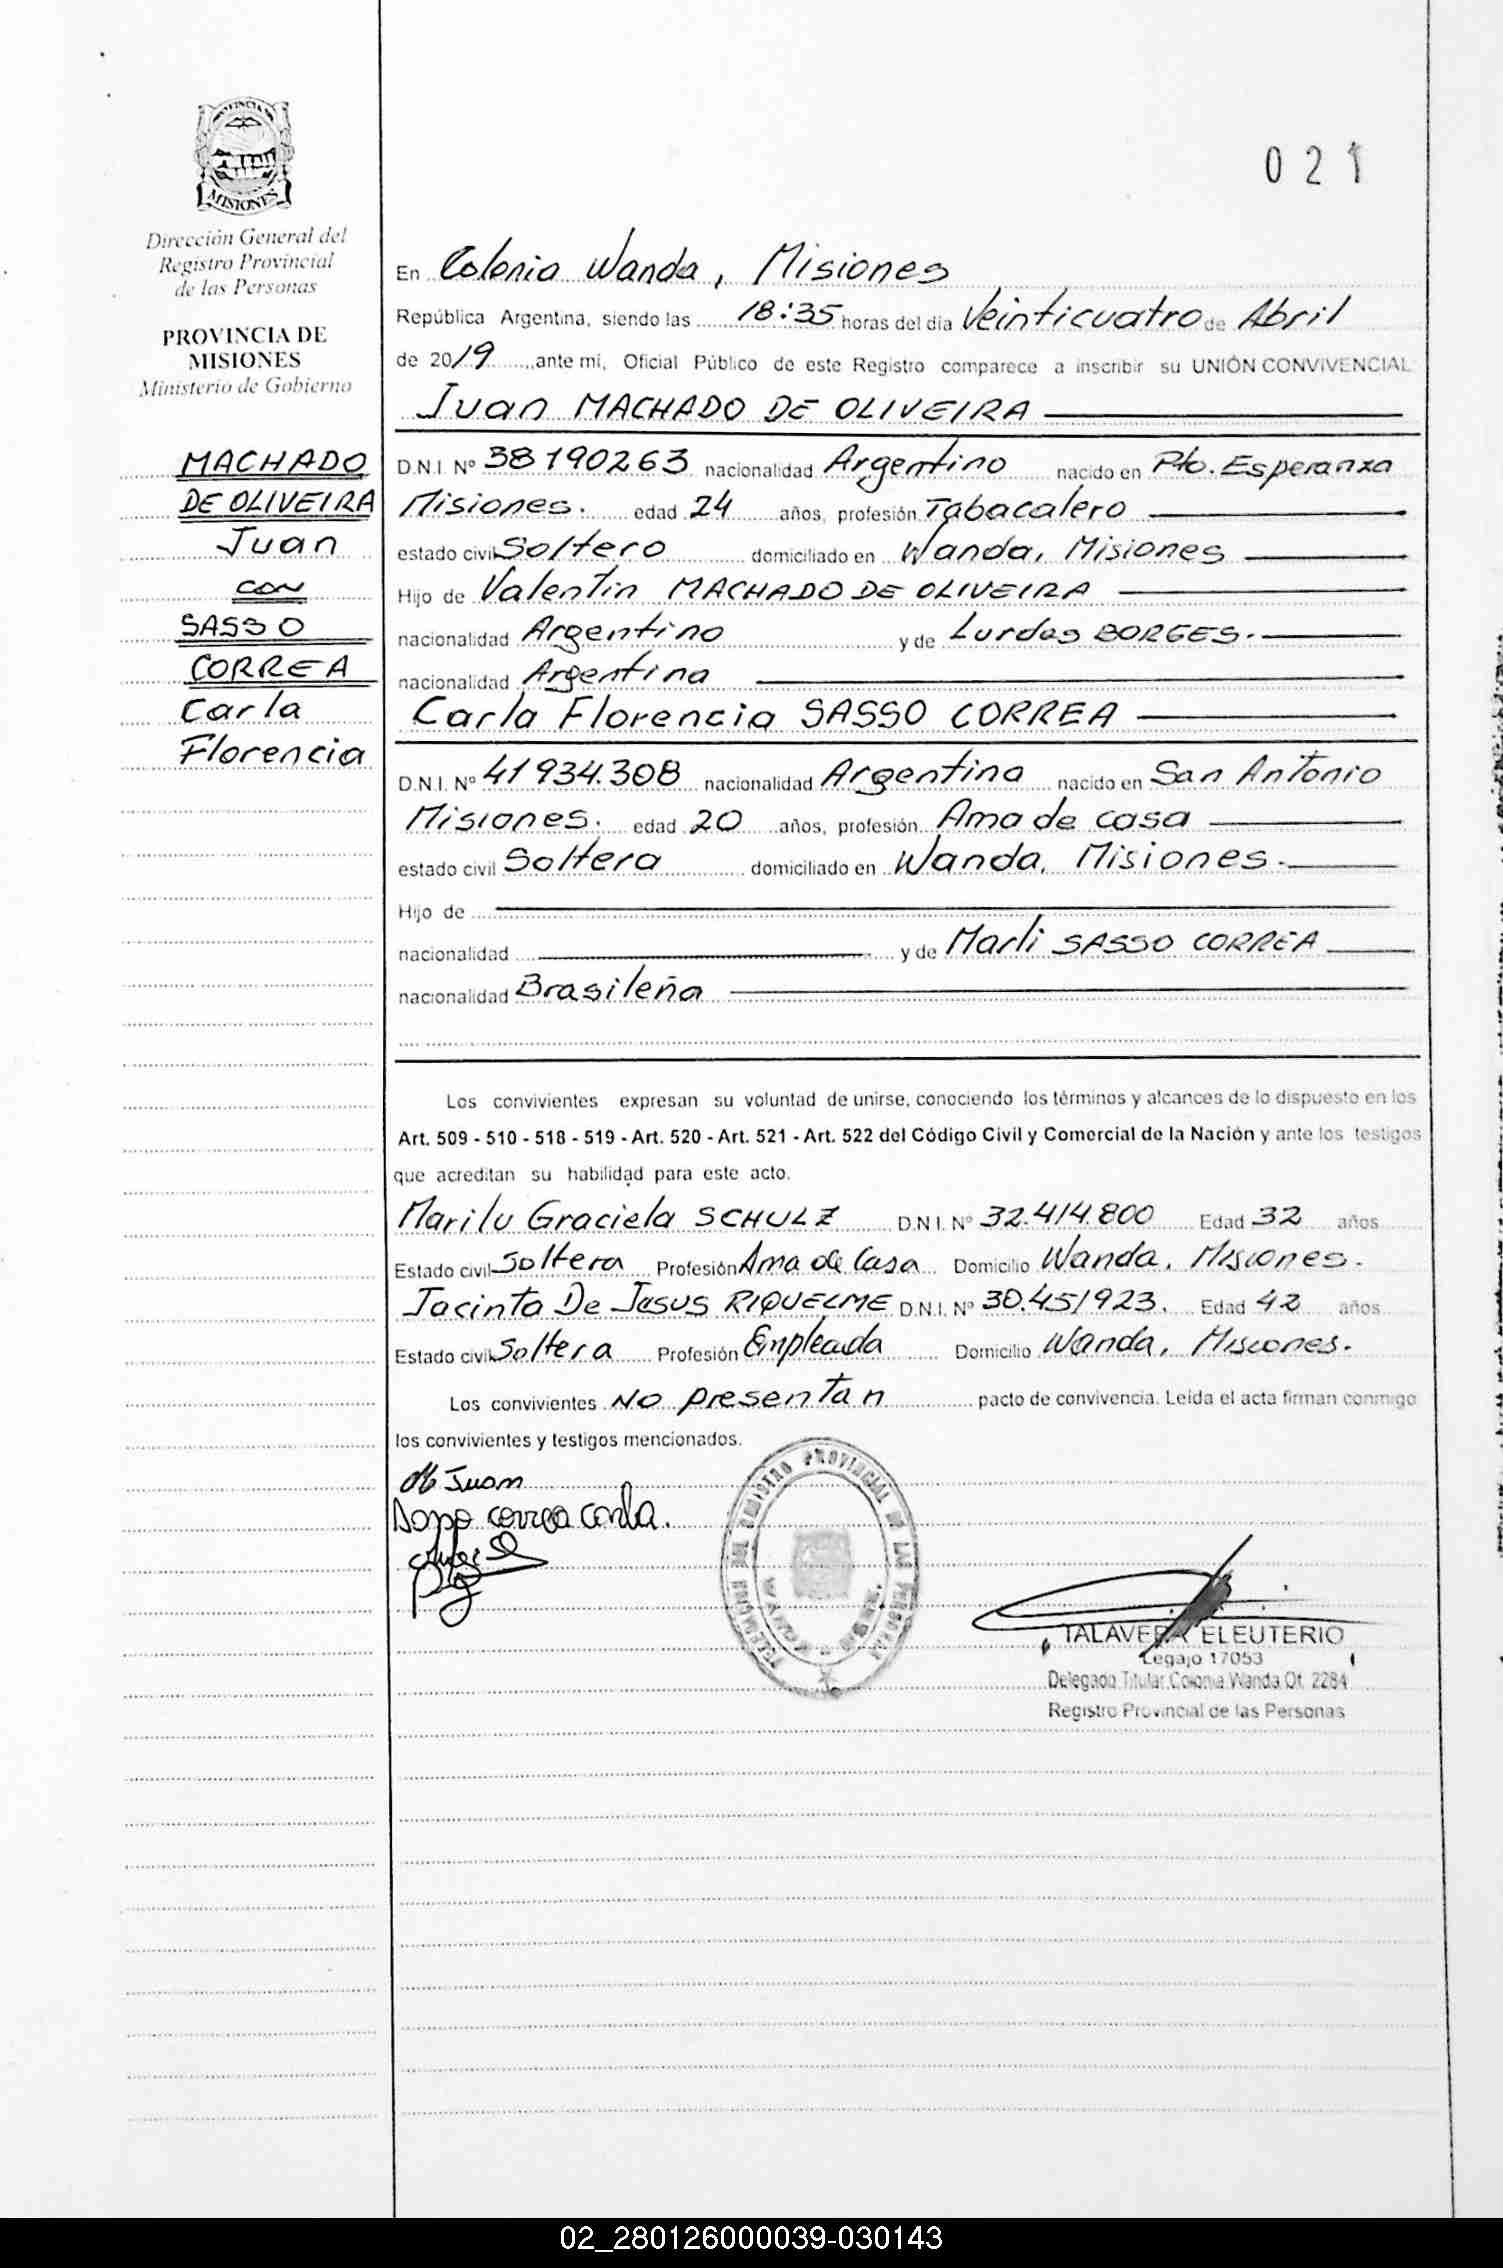 021
PROVINCIA DE
MISIONES
Dirección General del
Registro Provincial
de las Personas
PROVINCIA DE
MISIONES
Ministerio de Gobierno
MACHADO
DE OLIVEIRA
Juan
con
SASSO
CORREA
Carla
Florencia
En Colonia Wanda, Misiones
República Argentina, siendo las 18:35 horas del día Veinticuatro de Abril
de 2019, ante mi, Oficial Público de este Registro comparece a inscribir su UNIÓN CONVIVENCIAL
Juan MACHADO DE OLIVEIRA
D.N.I. Nº 38190263 nacionalidad Argentino nacido en Pto. Esperanza
Misiones. edad 24 años, profesión Tabacalero
estado civil Soltero domiciliado en Wanda, Misiones
Hijo de Valentin MACHADO DE OLIVEIRA
nacionalidad Argentino y de Lurdes BORGES.
nacionalidad Argentina
Carla Florencia SASSO CORREA
D.N.I. Nº 41934.308 nacionalidad Argentina nacido en San Antonio
Misiones. edad 20 años, profesión Ama de casa
estado civil Soltera domiciliado en Wanda, Misiones.
Hijo de
nacionalidad y de Marli SASSO CORREA
nacionalidad Brasileña
Los convivientes expresan su voluntad de unirse, conociendo los términos y alcances de lo dispuesto en los
Art. 509 - 510 - 518 - 519 - Art. 520 - Art. 521 - Art. 522 del Código Civil y Comercial de la Nación y ante los testigos
que acreditan su habilidad para este acto.
Marilu Graciela SCHULZ D.N.I. Nº 32.414.800 Edad 32 años
Estado civil Soltera Profesión Ama de Casa Domicilio Wanda, Misiones.
Jacinta De Jesus RIQUELME D.N.I. Nº 30.451923. Edad 42 años
Estado civil Soltera Profesión Empleada Domicilio Wanda, Misiones.
Los convivientes NO presentan pacto de convivencia. Leída el acta firman conmigo
los convivientes y testigos mencionados.
Juan
Sasso Correa Carla.
REGISTRO PROVINCIAL DE LAS PERSONAS
TALAVERA ELEUTERIO
Legajo 17053
Delegado Titular Colonia Wanda Of. 2284
Registro Provincial de las Personas
02_280126000039-030143